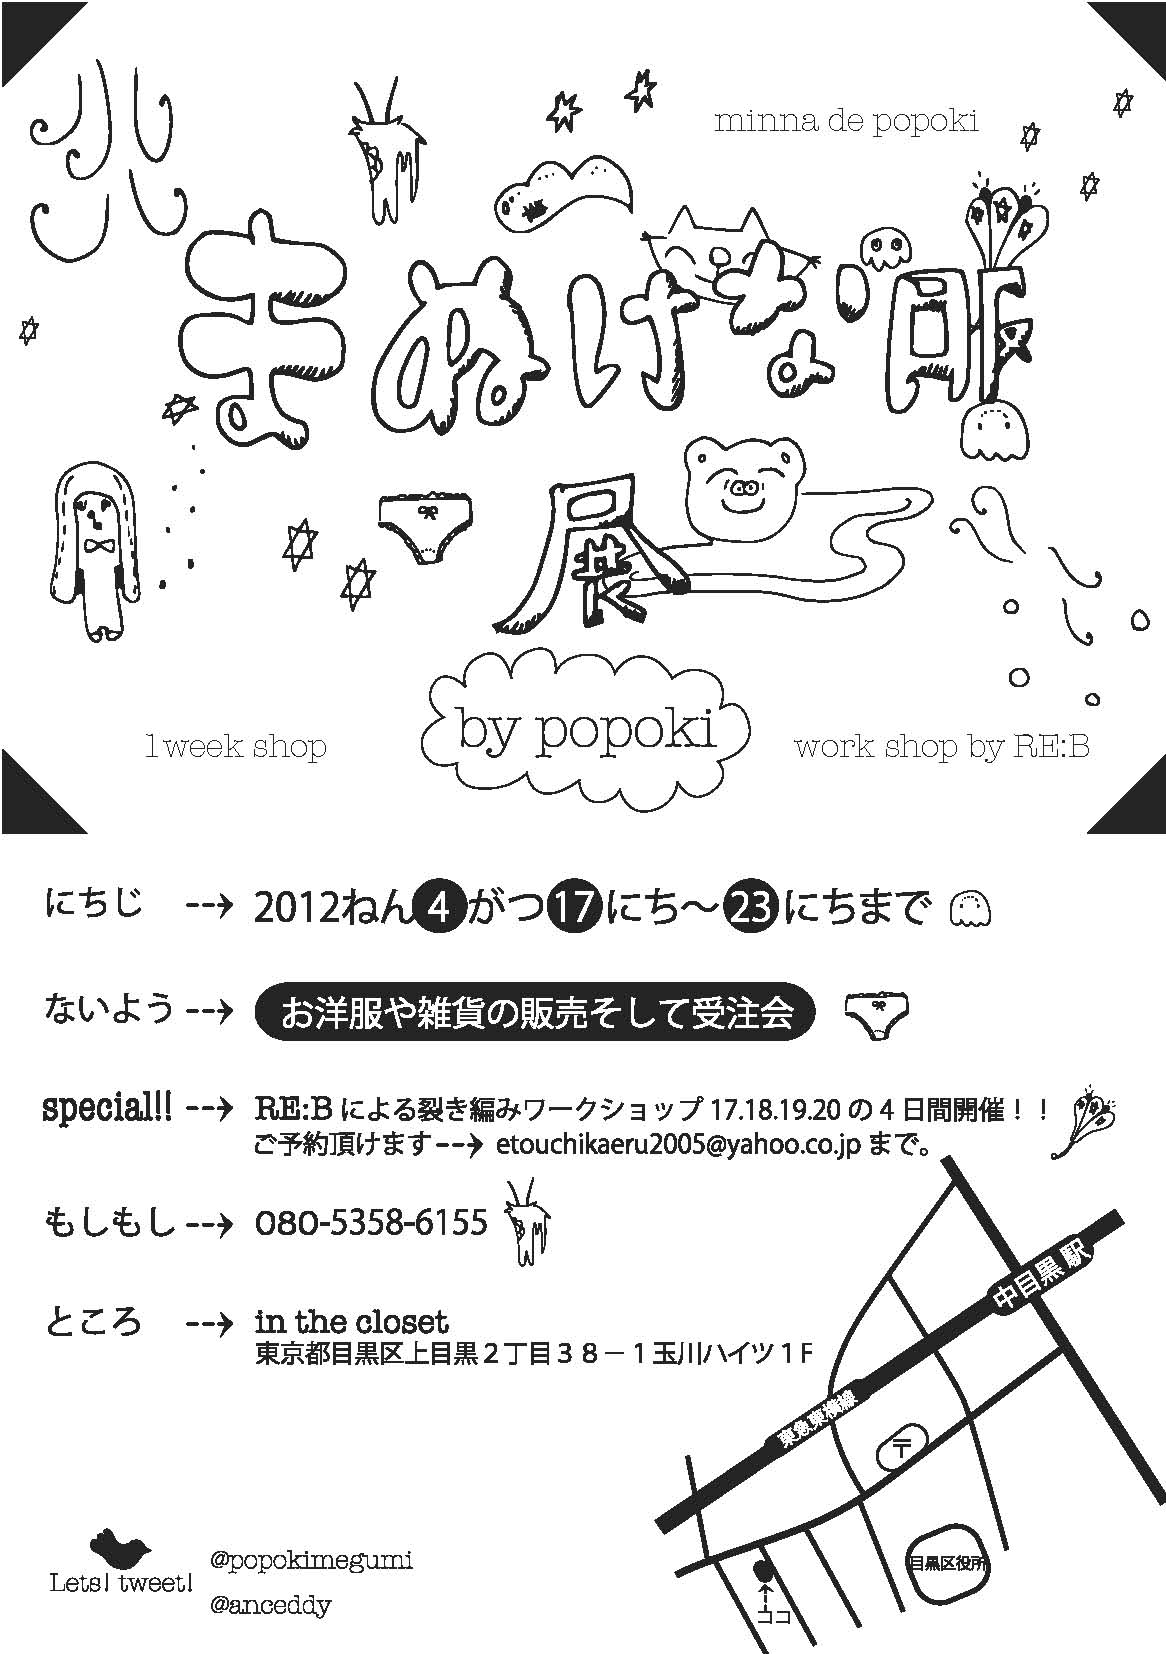 minna de popoki
まぬけな服
展
by popoki
1week shop
work shop by RE:B
にちじ --→ 2012ねん4がつ17にち～23にちまで
ないよう --→ お洋服や雑貨の販売そして受注会
special!! --→ RE:B による裂き編みワークショップ 17.18.19.20 の 4 日間開催！！
ご予約頂けます--→ etouchikaeru2005@yahoo.co.jp まで。
もしもし --→ 080-5358-6155
ところ --→ in the closet
東京都目黒区上目黒２丁目３８－１玉川ハイツ１F
中目黒駅
東急東横線
〒
目黒区役所
ココ
Lets! tweet!
@popokimegumi
@anceddy